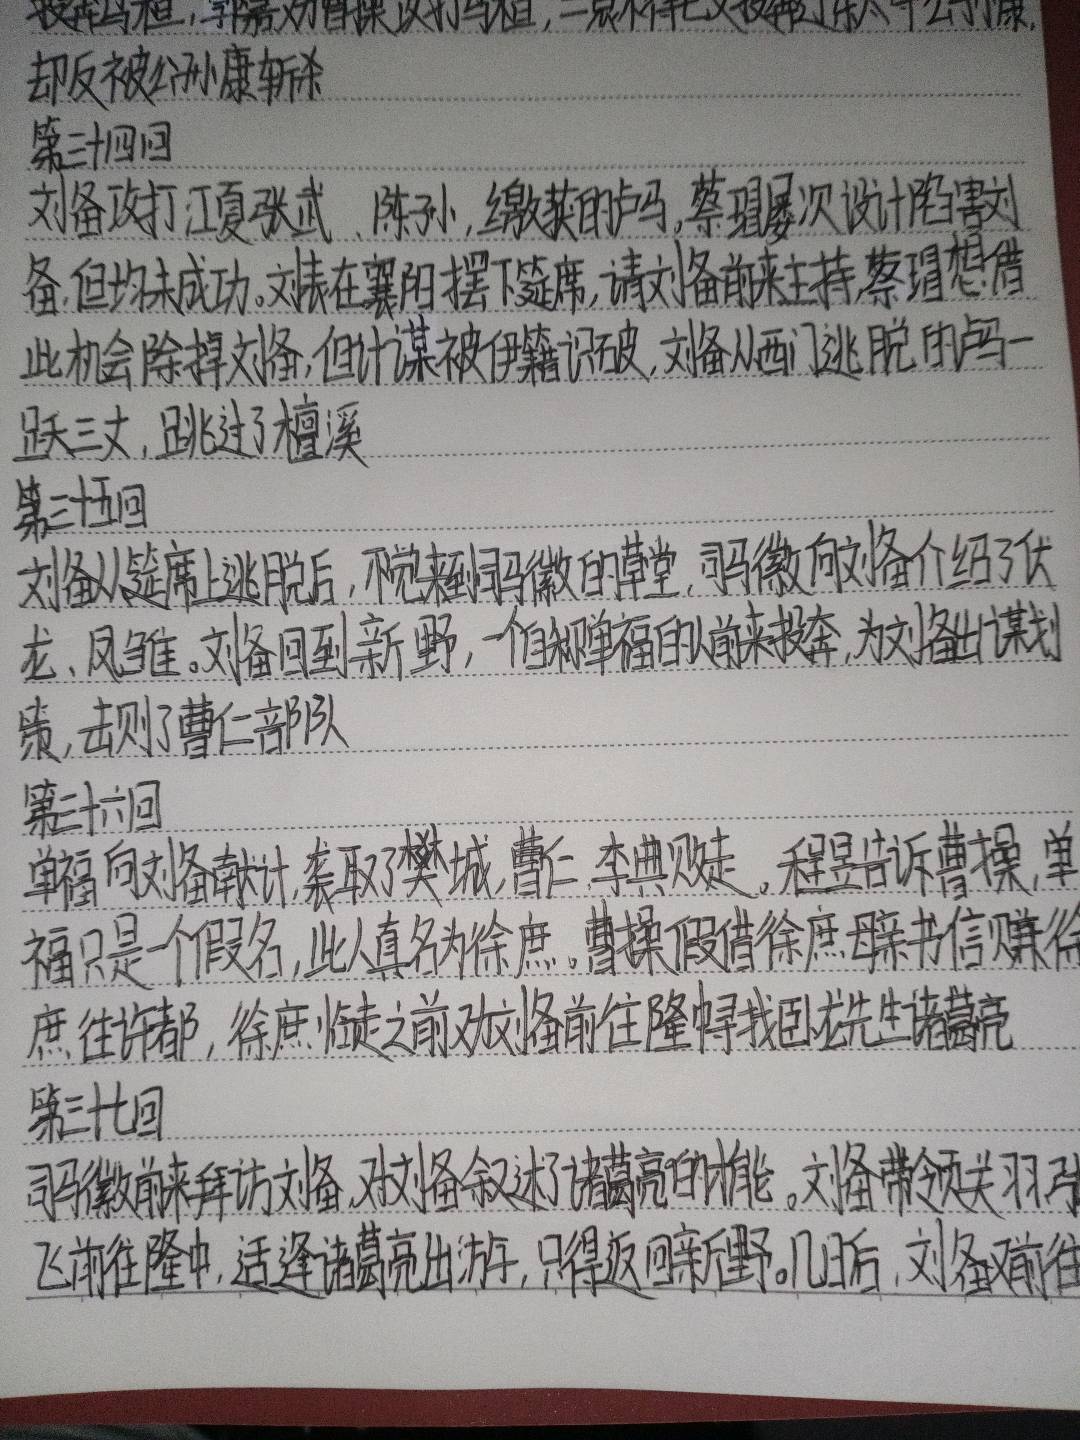 投奔乌桓，郭嘉劝曹操攻打乌桓，二袁不得已又投奔辽东太守公孙康，
却反被公孙康斩杀
第三十四回
刘备攻打江夏张武、陈孙，缴获的卢马，蔡瑁屡次设计陷害刘
备，但均未成功。刘表在襄阳摆下筵席，请刘备前来主持，蔡瑁想借
此机会除掉刘备，但计谋被伊籍识破，刘备从西门逃脱的卢马一
跃三丈，跳过了檀溪
第三十五回
刘备从筵席上逃脱后，不觉来到司马徽的草堂，司马徽向刘备介绍了伏
龙、凤雏。刘备回到新野，一个自称单福的人前来投奔，为刘备出谋划
策，击败了曹仁部队
第三十六回
单福向刘备献计，袭取了樊城，曹仁、李典败走。程昱告诉曹操，单
福只是一个假名，此人真名为徐庶。曹操假借徐庶母亲书信赚徐
庶往许都，徐庶临走之前劝刘备前往隆中寻找卧龙先生诸葛亮
第三十七回
司马徽前来拜访刘备，对刘备叙述了诸葛亮的才能。刘备带领关羽张
飞前往隆中，适逢诸葛亮出游，只得返回新野。几日后，刘备又前往